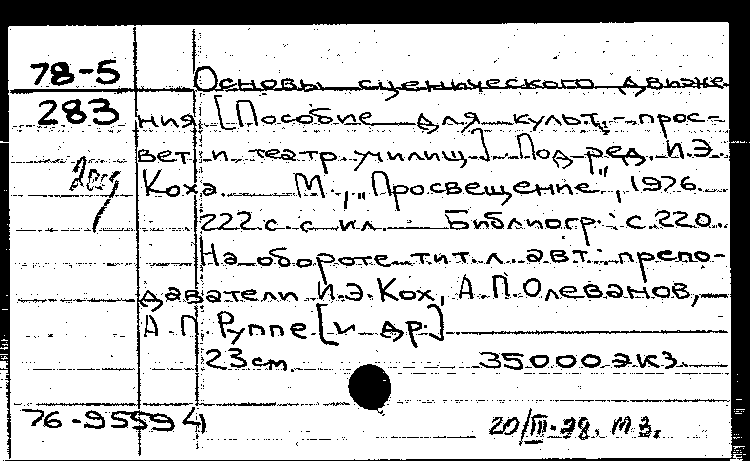 78-5 Основы сценического движе
283 ния [Пособие для культ.-прос-
вет и театр. училищ] Под ред. И.Э.
Коха. М., "Просвещение", 1976.
222 с. с ил. Библиогр.: с. 220.
На обороте тит. л. авт.: препо-
даватели И.Э. Кох, А.П. Олеванов,
А.П. Руппе [и др.]
23 см. 35000 экз.
76-95594 20/III-78. М.З.